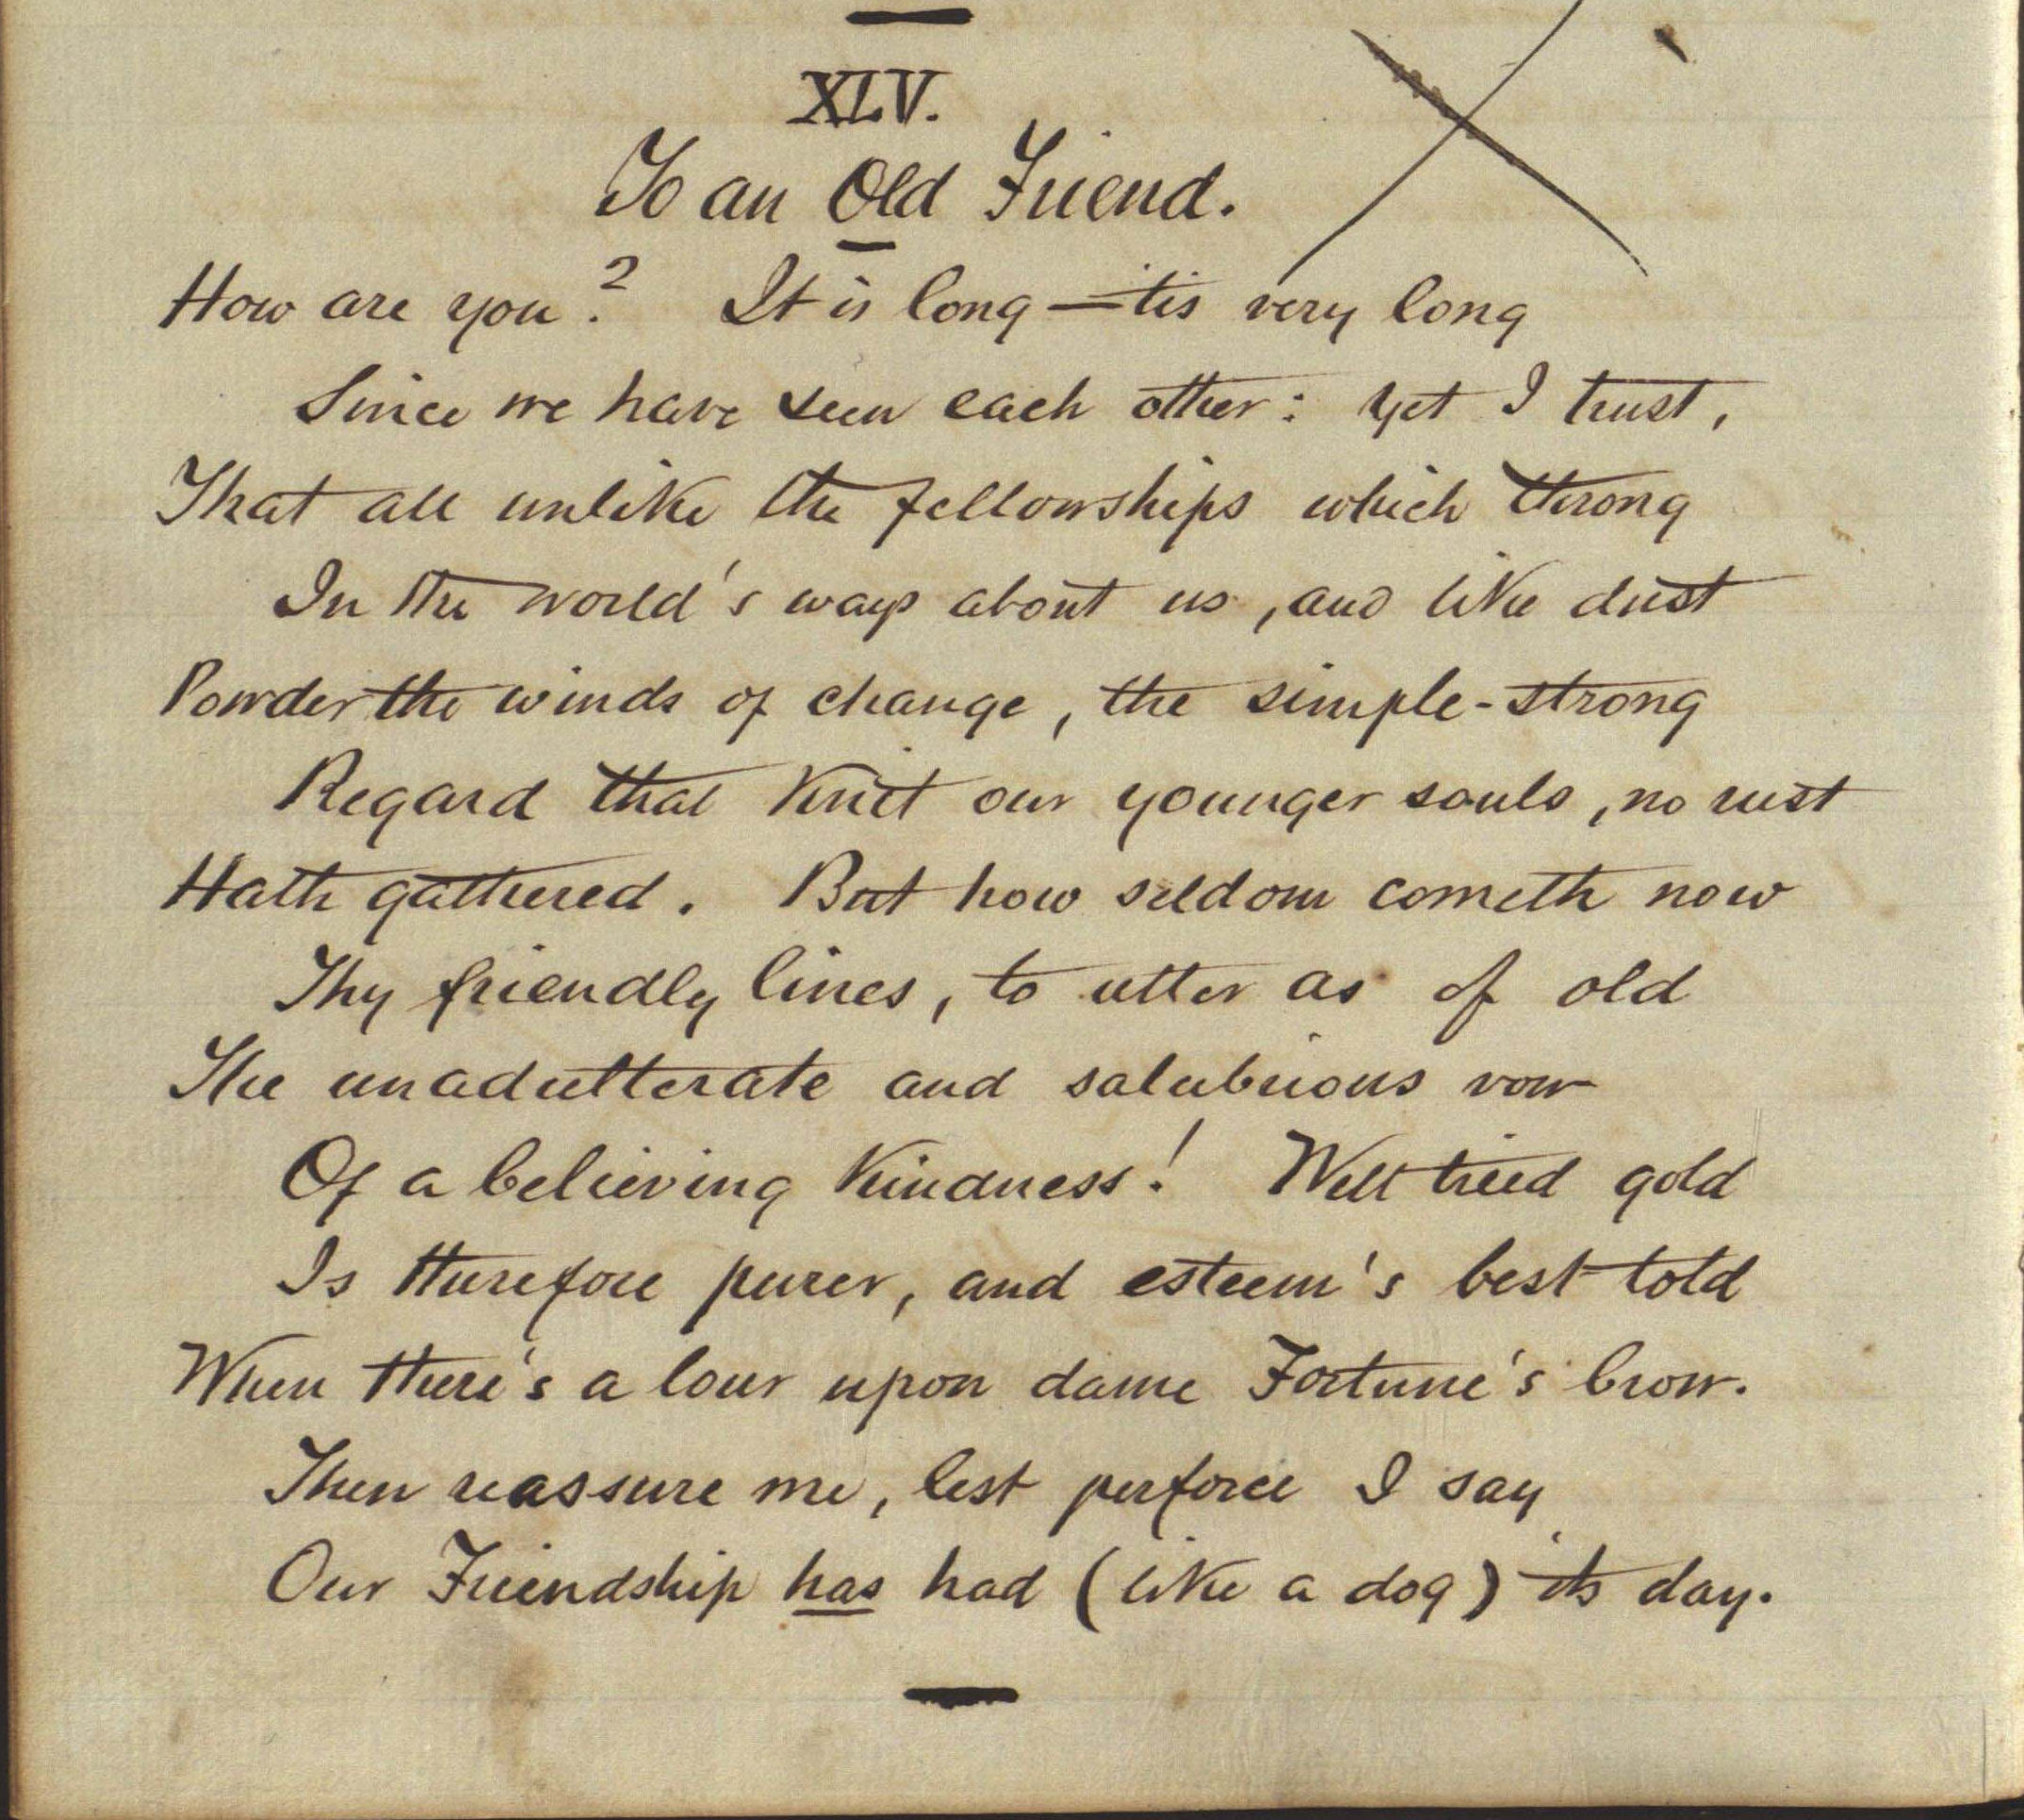 XLV.
To an Old Friend.
How are you? It is long — 'tis very long
Since we have seen each other: yet I trust,
That all unlike the fellowships which throng
In the world's ways about us, and like dust
Powder the winds of change, the simple-strong
Regard that knit our younger souls, no rust
Hath gathered. But how seldom cometh now
Thy friendly lines, to utter as of old
The unadulterate and salubrious vow
Of a believing kindness! Well tried gold
Is therefore purer, and esteem's best told
When there's a lour upon dame Fortune's brow.
Then reassure me, lest perforce I say
Our Friendship has had (like a dog) its day.